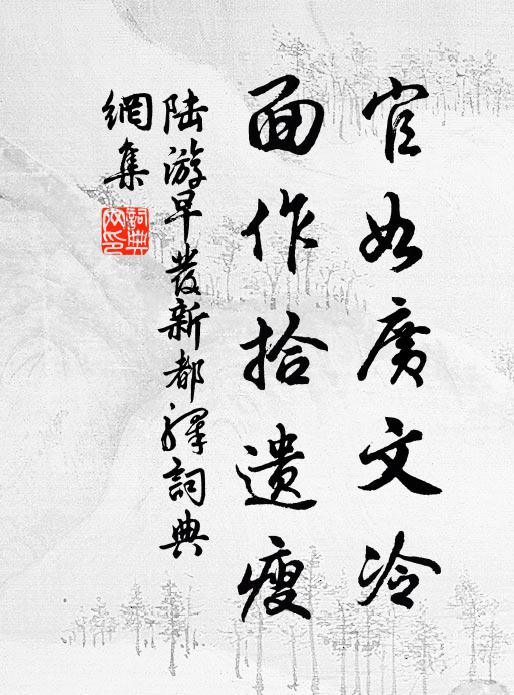 官如廣文冷
面作拾遺瘦
陆游早發新都驛詞典
網集
詞典
網印